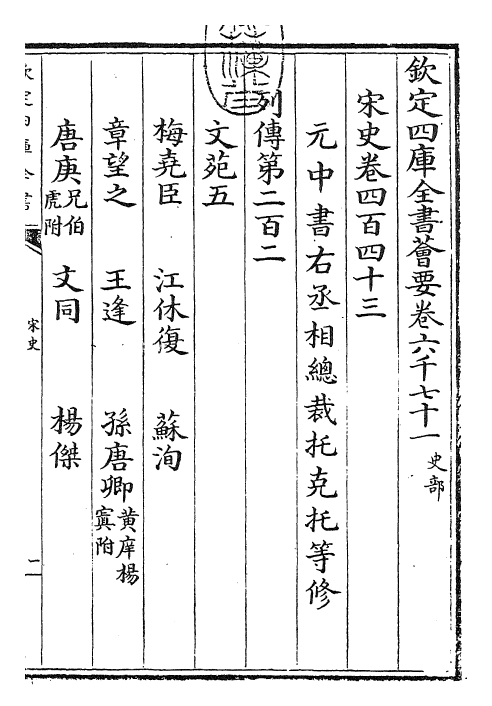 欽定四庫全書薈要卷六千七十一 史部
宋史卷四百四十三
元中書右丞相總裁托克托等修
列傳第二百二
文苑五
梅堯臣 江休復 蘇洵
章望之 王逢 孫唐卿 黄庠楊寘附
唐庚 兄伯虎附 文同 楊傑
欽定四庫全書
宋史